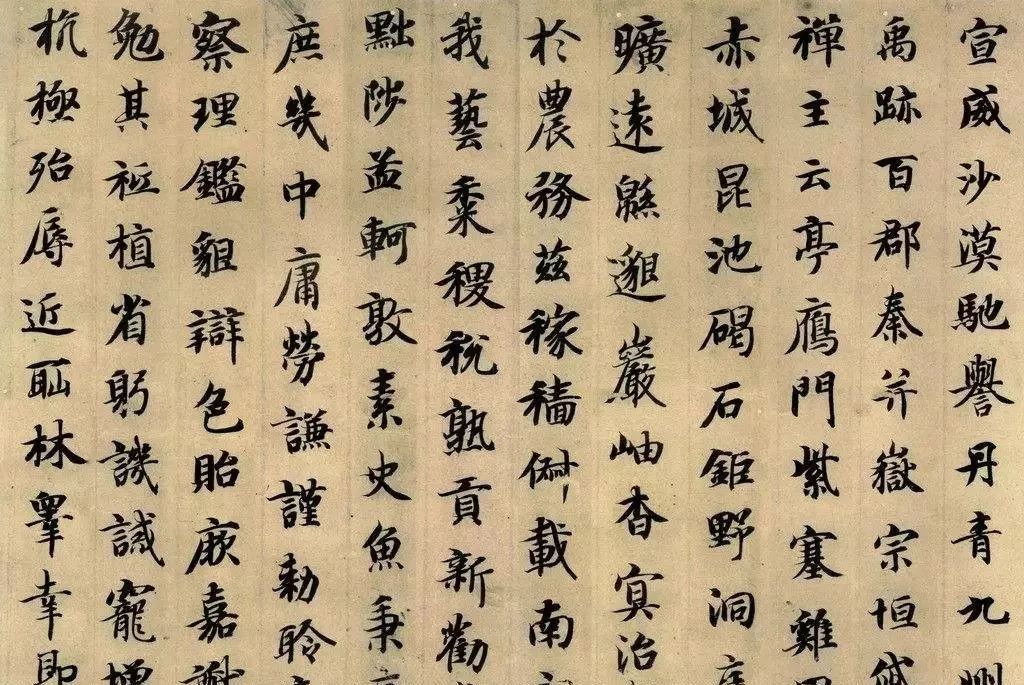 宣威沙漠馳譽丹青九
禹跡百郡秦并嶽宗恒岱
禪主云亭鴈門紫塞雞
赤城昆池碣石鉅野洞
曠遠緜邈巖岫杳冥治
於農務茲稼穡俶載南
我藝黍稷稅熟貢新勸
黜陟孟軻敦素史魚秉
庶幾中庸勞謙謹勅聆
察理鑑貌辯色貽厥嘉
勉其祗植省躬譏誡寵增
抗極殆辱近恥林皋幸即